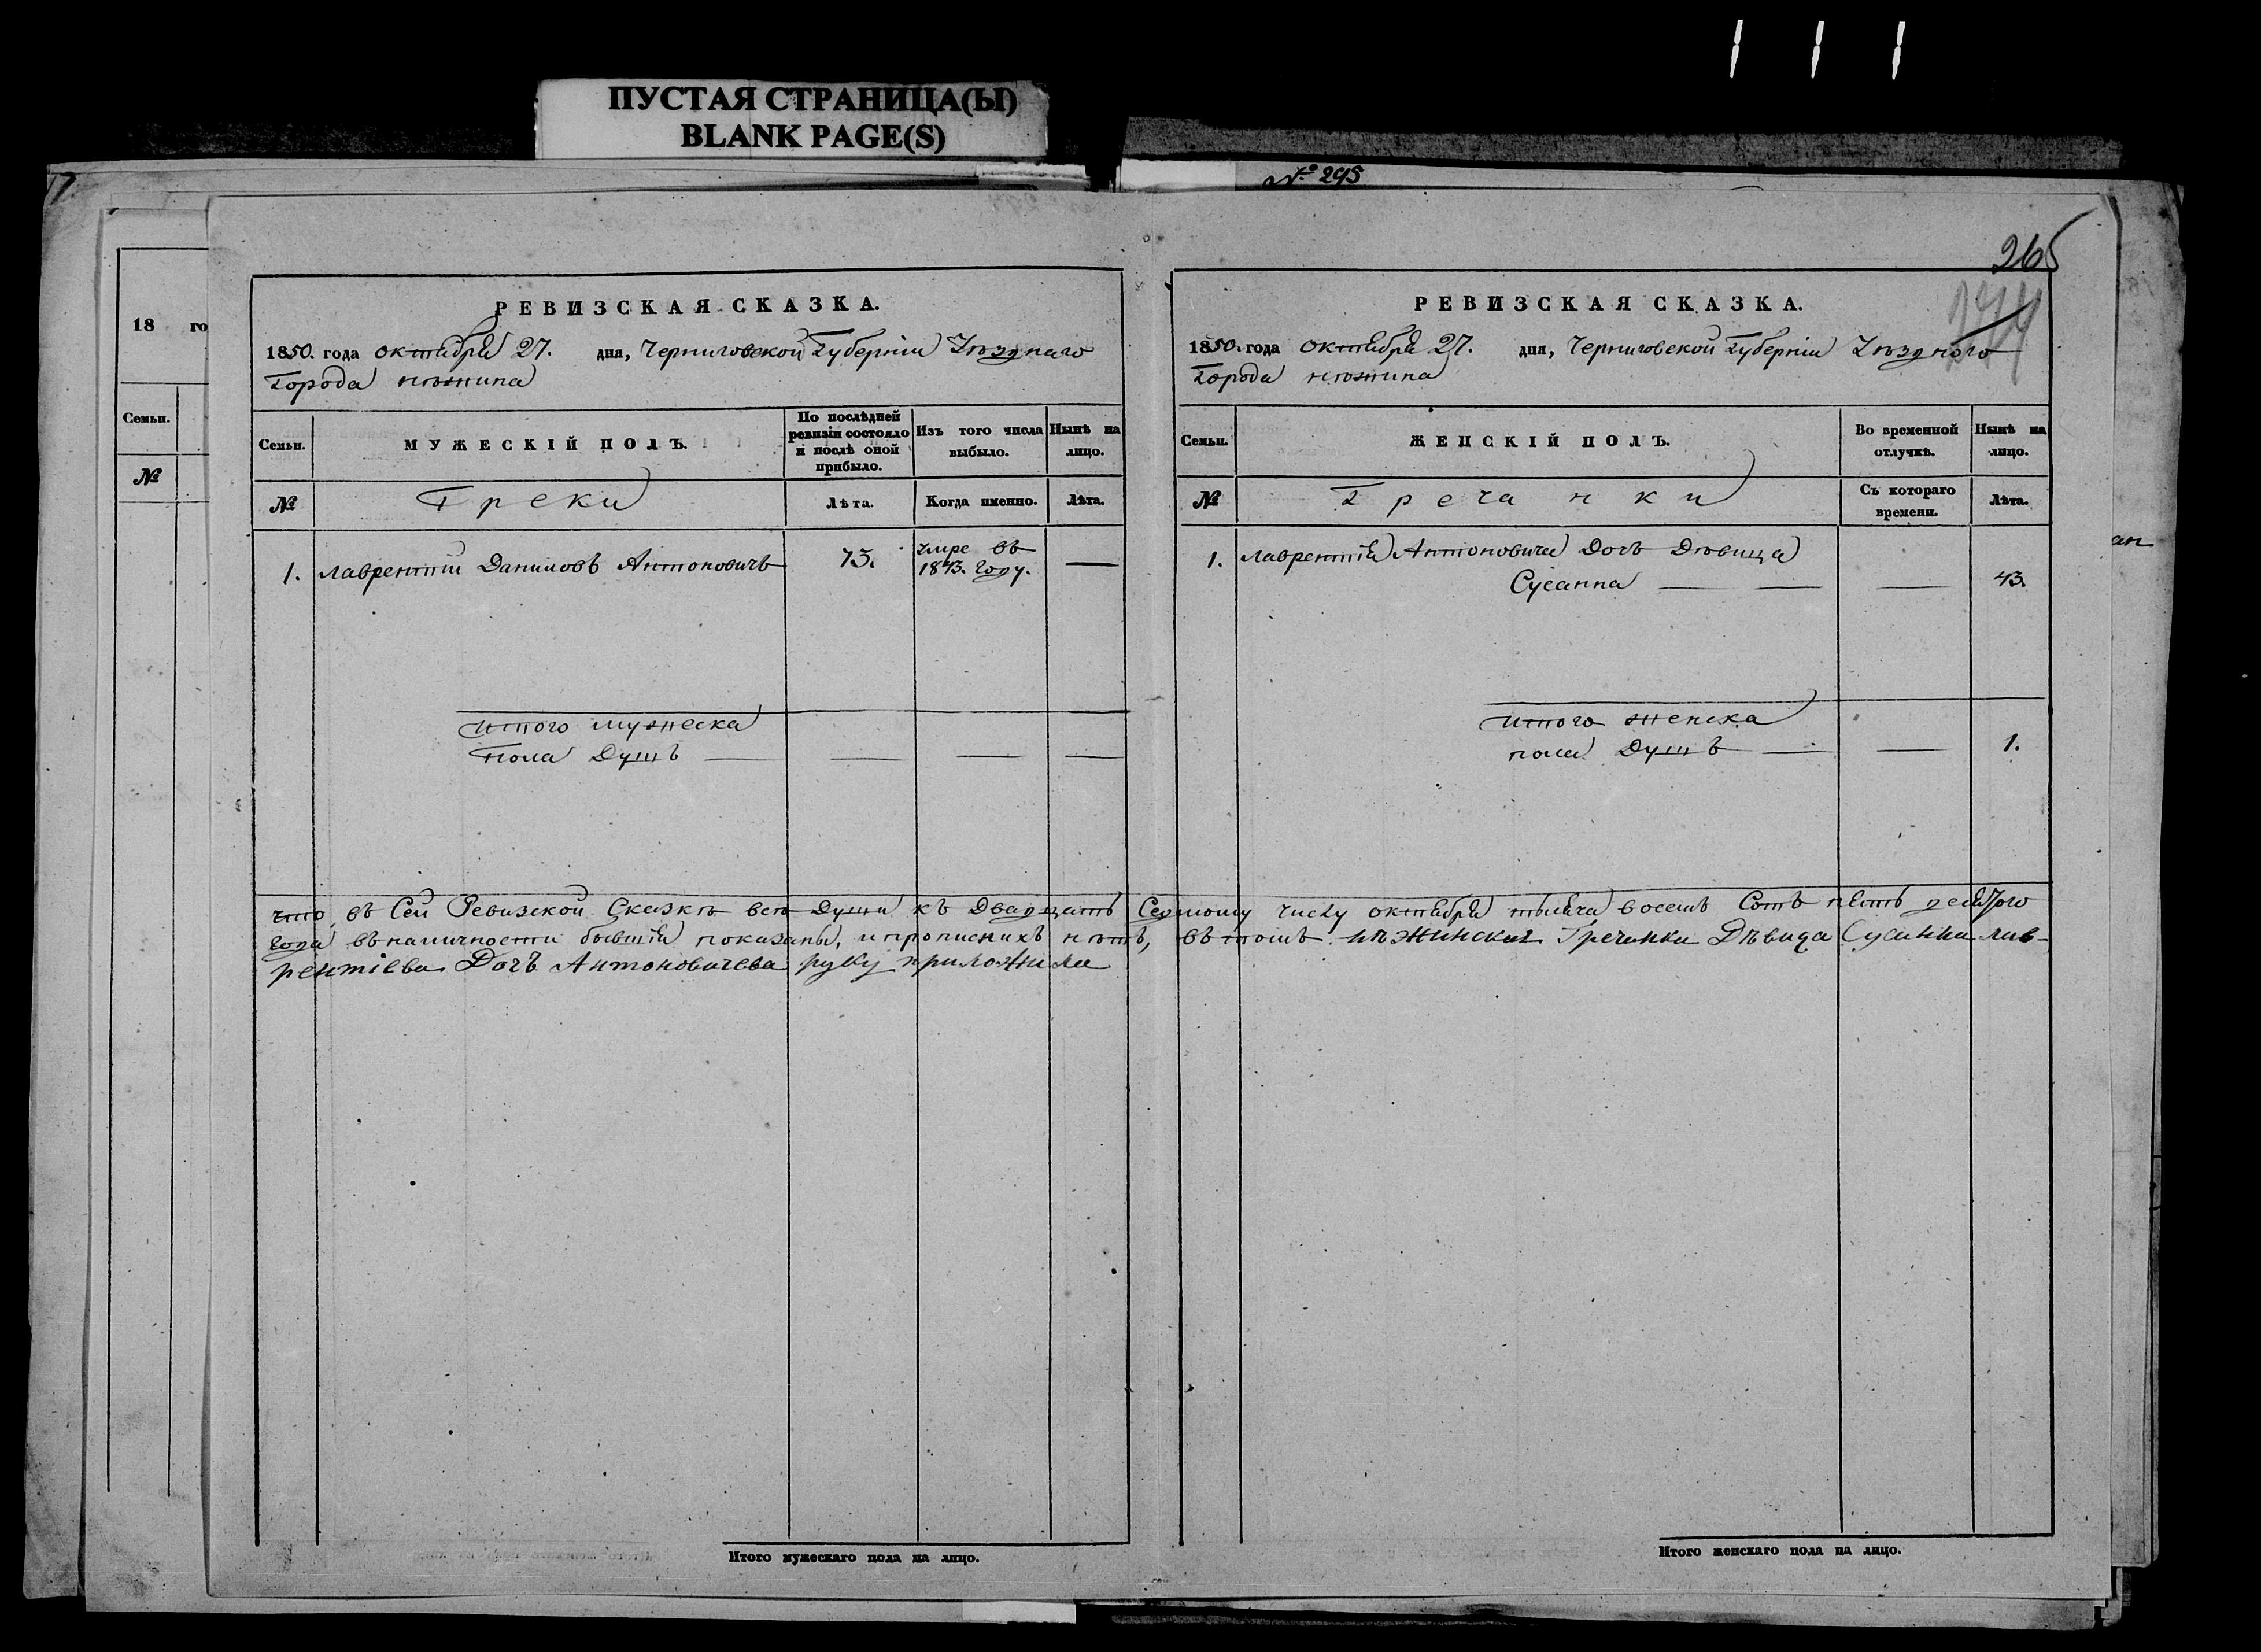 ПУСТАЯ СТРАНИЦА(Ы)
BLANK PAGE(S)
№ 295
265
18 го
Семьи.
№
РЕВИЗСКАЯ СКАЗКА.
1850. года октября 27. дня, Черниговской Губерніи Уѣзднаго
Города нѣжина
Семьи.
МУЖЕСКІЙ ПОЛЪ.
По послѣдней ревизіи состояло и послѣ оной прибыло.
Изъ того числа выбыло.
Нынѣ на лицо.
№
Греки
Лѣта.
Когда именно.
Лѣта.
1. Лаврентій Даниловъ Антоновичъ 75. умре въ
1843. Году. —
итого мужеска
пола Душъ — — — —
РЕВИЗСКАЯ СКАЗКА.
1850. года октября 27. дня, Черниговской Губерніи Уѣздного
Города нѣжина
Семьи.
ЖЕНСКІЙ ПОЛЪ.
Во временной отлучкѣ.
Нынѣ на лицо.
№
Гречанки
Съ котораго времени.
Лѣта.
1. Лаврентія Антоновича Дочь Дѣвица
Сусанна — — — 43.
итого женска
пола Душъ — — 1.
что въ Сей Ревизской Сказкѣ всѣ Души къ Двадцать Седмому числу октября тысяча восемь Сотъ пять десятого
Года въ наличности бывшія показаны, и прописныхъ нѣтъ, въ томъ нѣжинская Гречанка Дѣвица Сусанна Лав-
рентіева Дочь Антоновичева руку приложила
Итого мужескаго пола на лицо.
Итого женскаго пола на лицо.